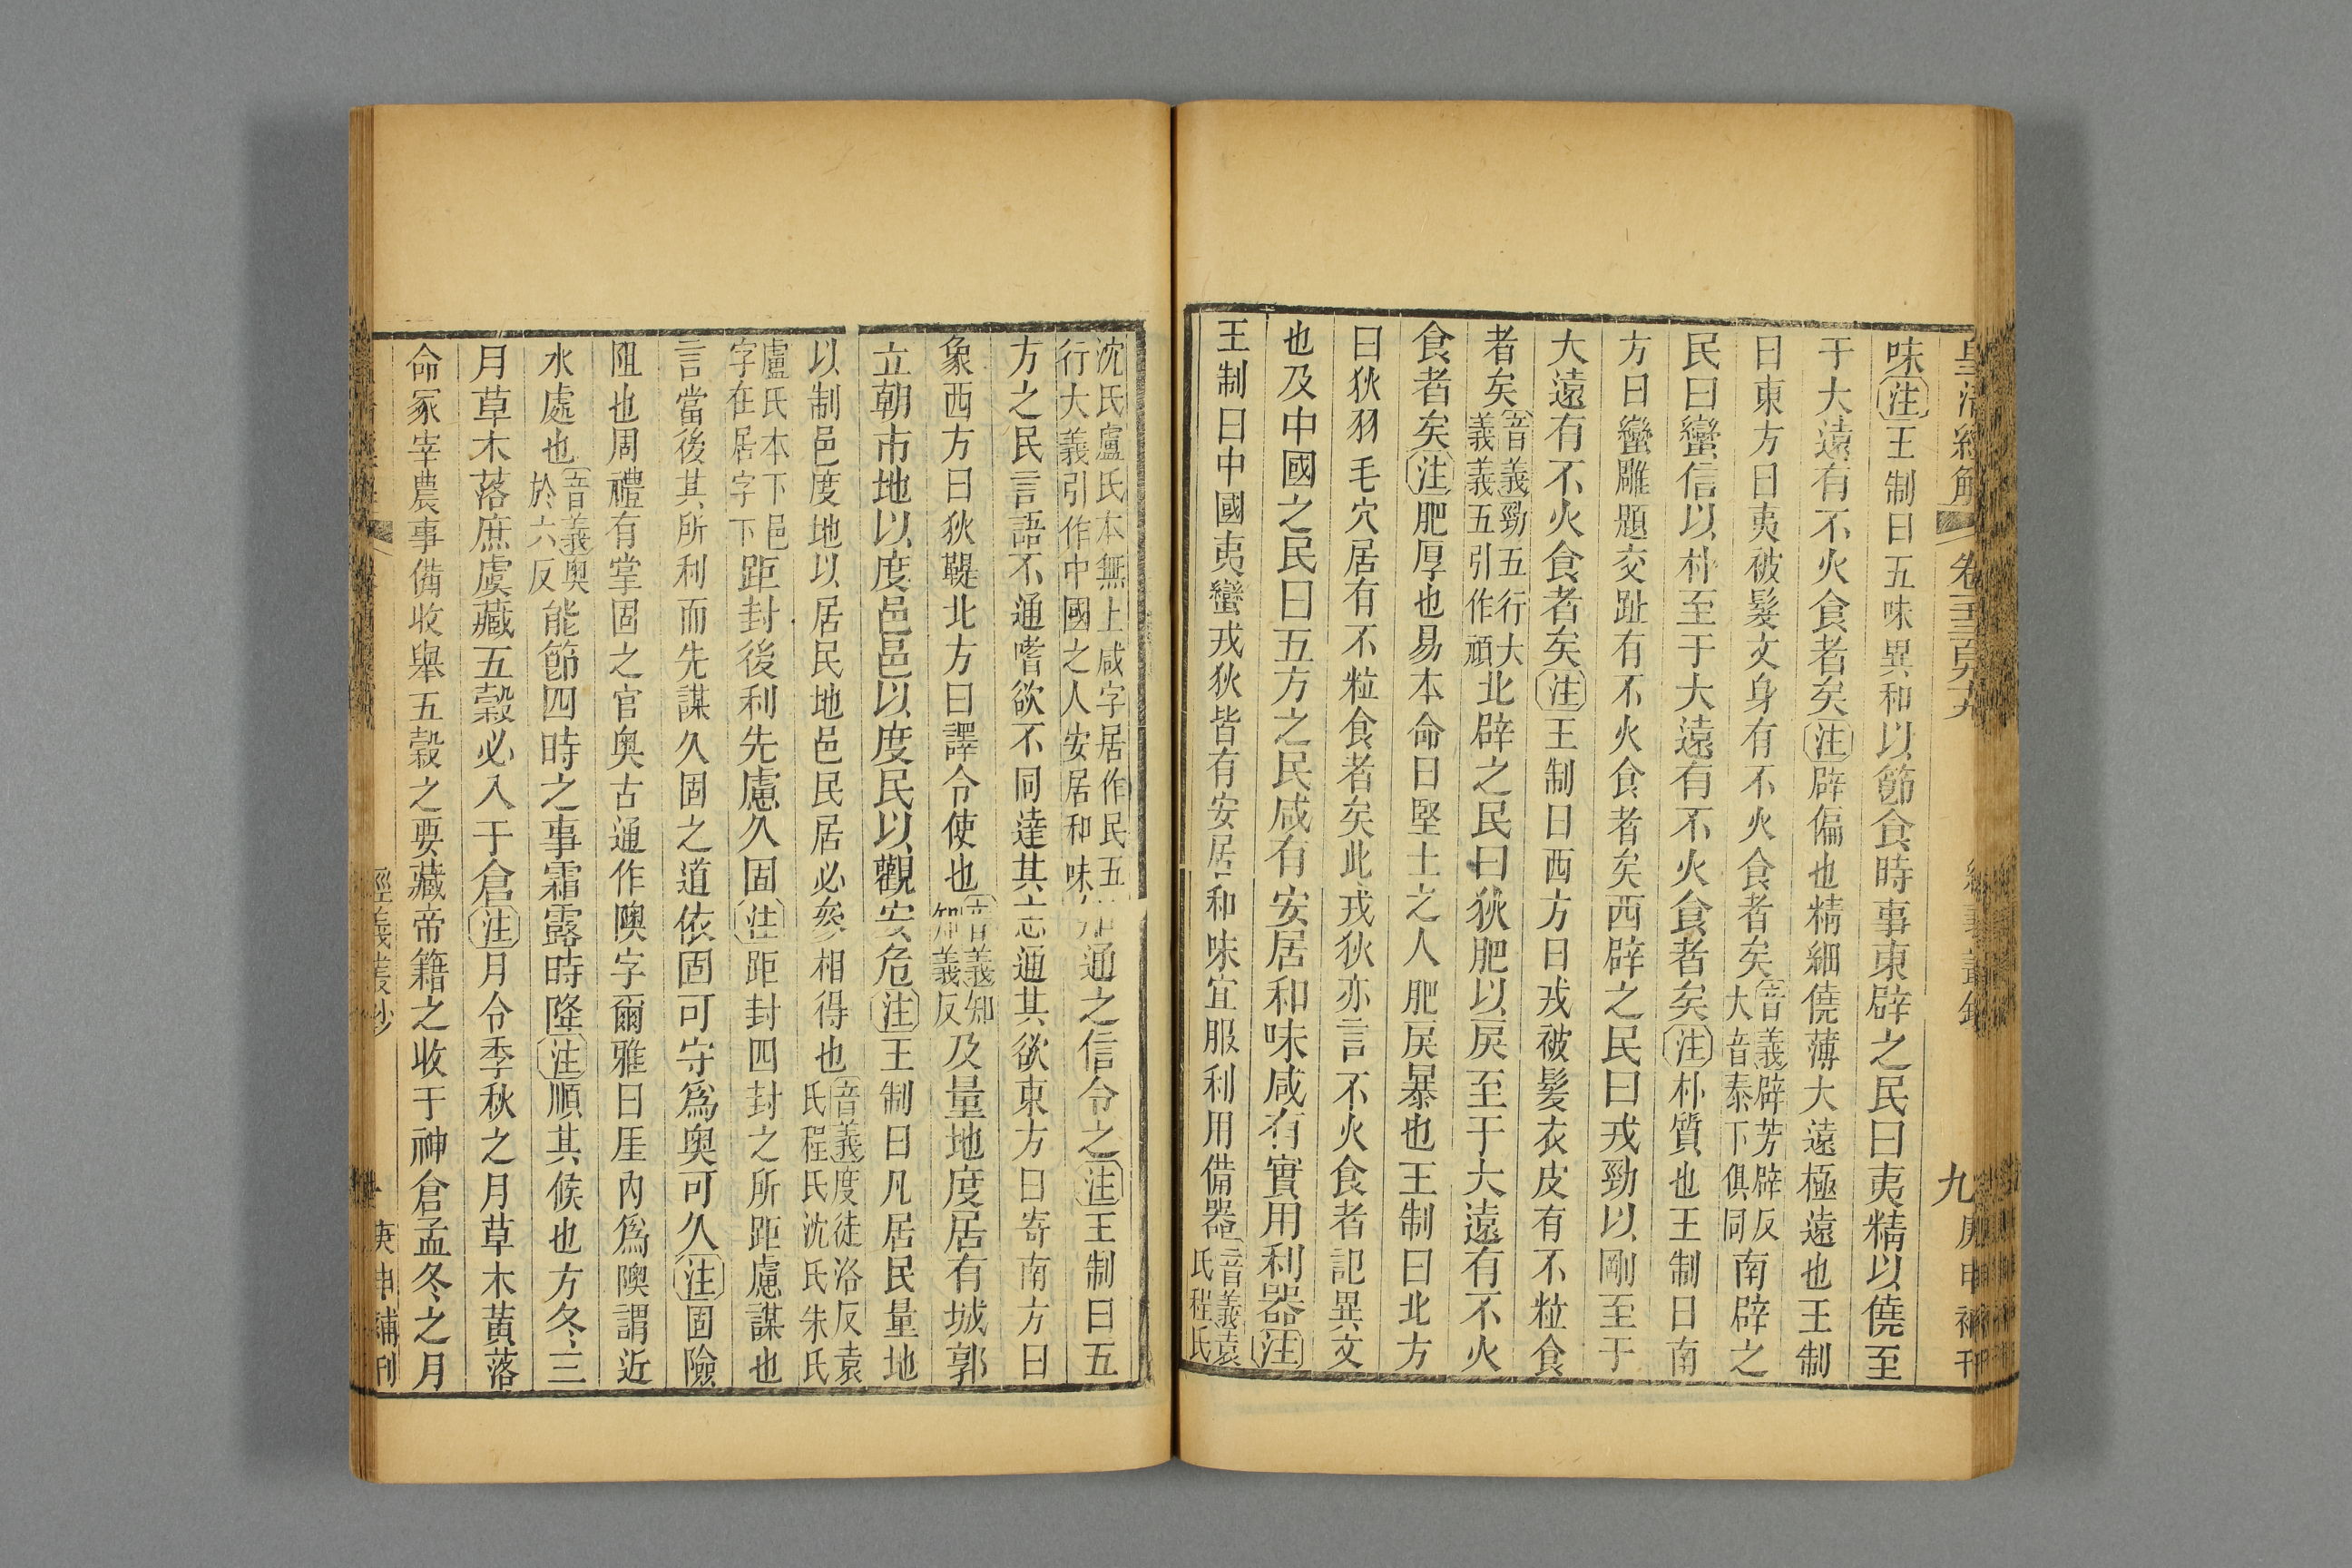 皇清經解 卷 經義叢鈔 九 庚申補刊
味注王制曰五味異和以節食時事東辟之民曰夷精以僥至
于大遠有不火食者矣注辟偏也精細僥薄大遠極遠也王制
曰東方曰夷被髮文身有不火食者矣音義辟芳辟反大音泰下俱同南辟之
民曰蠻信以朴至于大遠有不火食者矣注朴質也王制曰南
方曰蠻雕題交趾有不火食者矣西辟之民曰戎勁以剛至于
大遠有不火食者矣注王制曰西方曰戎被髮衣皮有不粒食
者矣音義勁五行大義義五引作頑北辟之民曰狄肥以戾至于大遠有不火
食者矣注肥厚也易本命曰堅土之人肥戾暴也王制曰北方
曰狄羽毛穴居有不粒食者矣此戎狄亦言不火食者記異文
也及中國之民曰五方之民咸有安居和味咸有實用利器注
王制曰中國夷蠻戎狄皆有安居和味宜服利用備器音義袁氏程氏
沈氏盧氏本無上咸字居作民五行大義引作中國之人安居和味通之信令之注王制曰五
方之民言語不通嗜欲不同達其志通其欲東方曰寄南方曰
象西方曰狄鞮北方曰譯令使也音義知知義反及量地度居有城郭
立朝市地以度邑邑以度民以觀安危注王制曰凡居民量地
以制邑度地以居民地邑民居必參相得也音義度徒洛反袁氏程氏沈氏朱氏
盧氏本下邑字在居字下距封後利先慮久固注距封四封之所距慮謀也
言當後其所利而先謀久固之道依固可守爲奧可久注固險
阻也周禮有掌固之官奧古通作隩字爾雅曰厓內爲隩謂近
水處也音義奧於六反能節四時之事霜露時降注順其候也方冬三
月草木落庶虞藏五穀必入于倉注月令季秋之月草木黃落
命冢宰農事備收舉五穀之要藏帝籍之收于神倉孟冬之月
經義叢鈔 庚申補刊